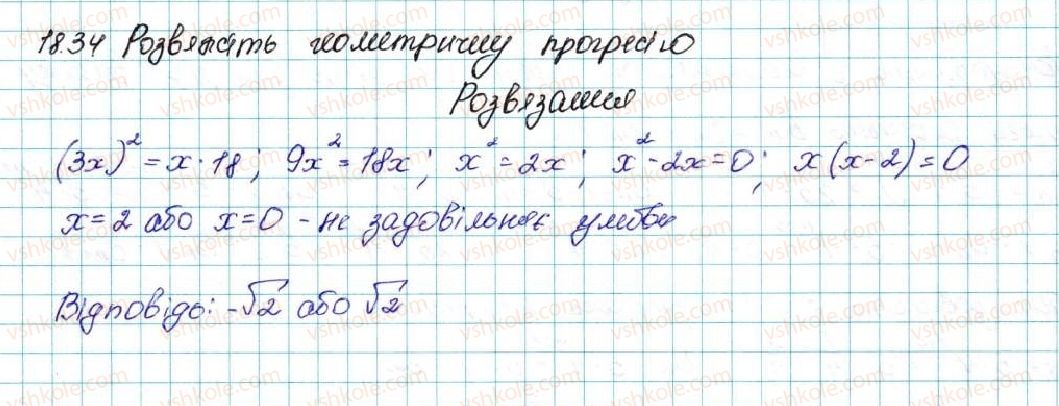 18.34 Розвяжіть геометричну прогресію
Розвязання
(3x)² = x · 18; 9x² = 18x; x² = 2x; x² - 2x = 0; x(x-2) = 0
x = 2 або x = 0 - не задовільняє умови
Відповідь: -√2 або √2